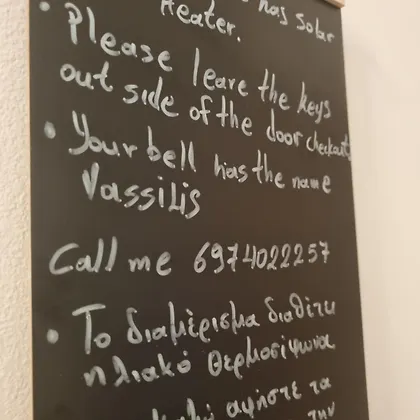 has solar
Heater.
• Please leave the keys
out side of the door checkout
• Your bell has the name
Vassilis
Call me 6974022257
• Το διαμέρισμα διαθέτει
ηλιακό θερμοσίφωνα
αφήστε τα
την